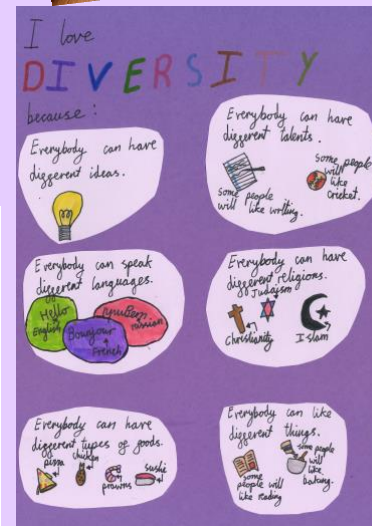 I love
DIVERSITY
because:
Everybody can have
different ideas.
Everybody can have
different talents.
some people
will like writing.
some people
will
like
cricket.
Everybody can speak
different languages.
Hello
English
Bonjour
French
russian
Everybody can have
different religions.
Judaism
Christianity
Islam
Everybody can have
different types of foods.
pizza
chicken
prawns
sushi
Everybody can like
different things.
some
people will
like reading
some people
will
like
baking.